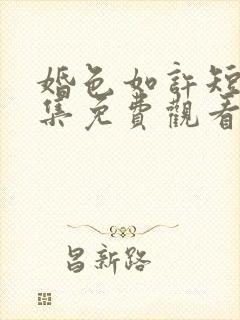 婚色如許短
集免費觀看
昌新路